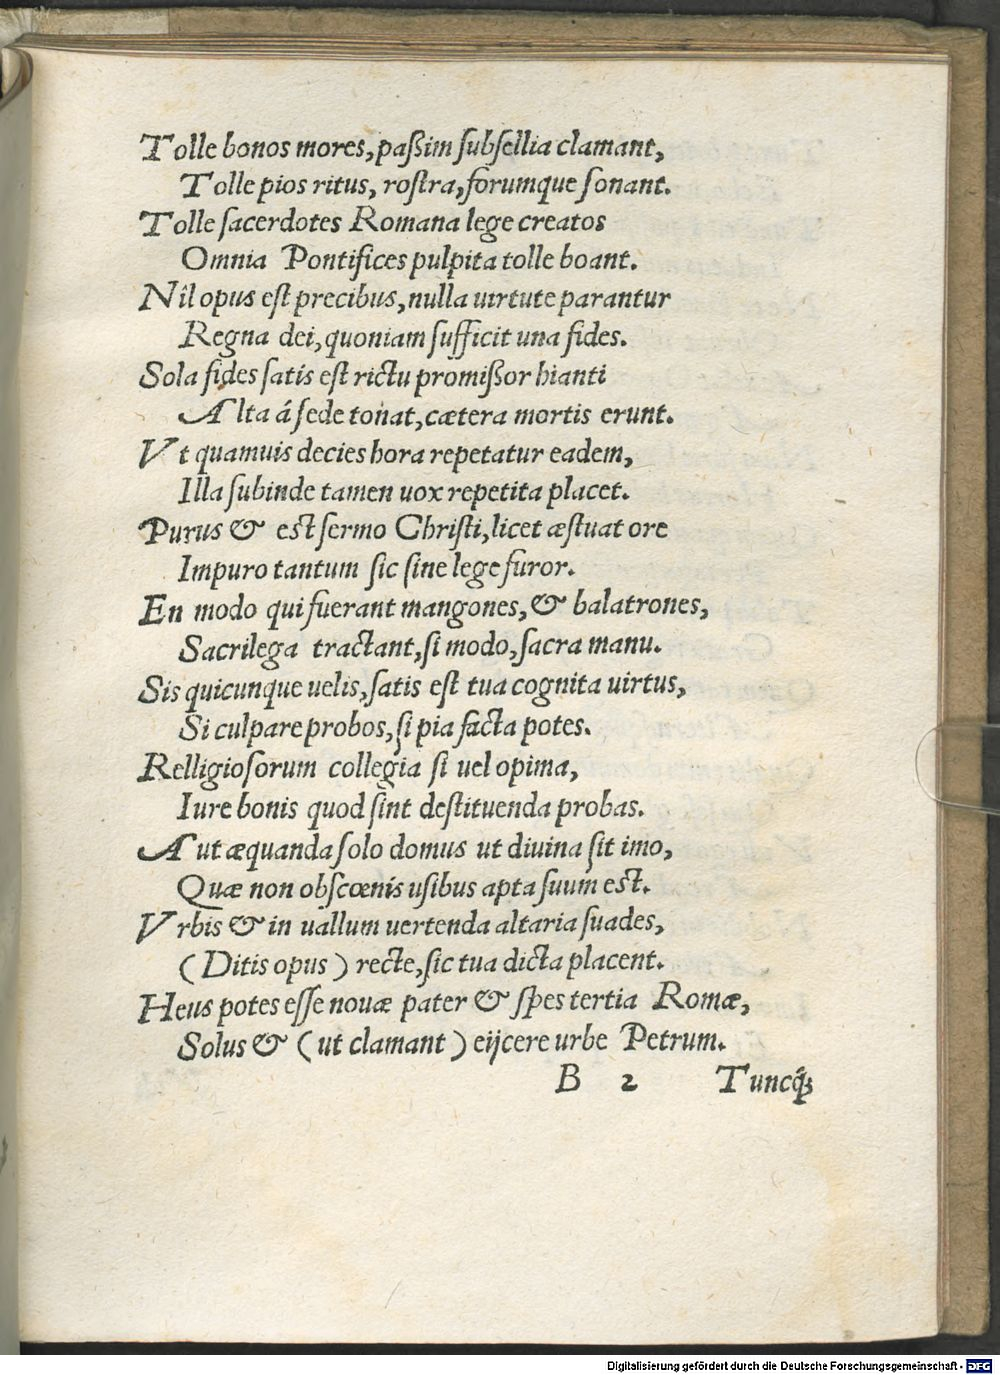 Tolle bonos mores, paßim ſubſellia clamant,
Tolle pios ritus, roſtra, forumque ſonant.
Tolle ſacerdotes Romana lege creatos
Omnia Pontifices pulpita tolle boant.
Nil opus eſt precibus, nulla uirtute parantur
Regna dei, quoniam ſufficit una fides.
Sola fides ſatis eſt rictu promißor hianti
Alta á ſede tonat, cætera mortis erunt.
Vt quamuis decies hora repetatur eadem,
Illa ſubinde tamen uox repetita placet.
Purus & est ſermo Chriſti, licet æſtuat ore
Impuro tantum ſic ſine lege furor.
En modo qui fuerant mangones, & balatrones,
Sacrilega tractant, ſi modo, ſacra manu.
Sis quicunque uelis, ſatis eſt tua cognita uirtus,
Si culpare probos, ſi pia facta potes.
Relligioſorum collegia ſi uel opima,
Iure bonis quod ſint deſtituenda probas.
Aut æquanda ſolo domus ut diuina ſit imo,
Quæ non obſcœnis uſibus apta ſuum est.
Vrbis & in uallum uertenda altaria ſuades,
(Ditis opus) recte, ſic tua dicta placent.
Heus potes eſſe nouæ pater & ſpes tertia Romæ,
Solus & (ut clamant) eijcere urbe Petrum.
B 2 Tuncq́;
Digitalisierung gefördert durch die Deutsche Forschungsgemeinschaft - DFG